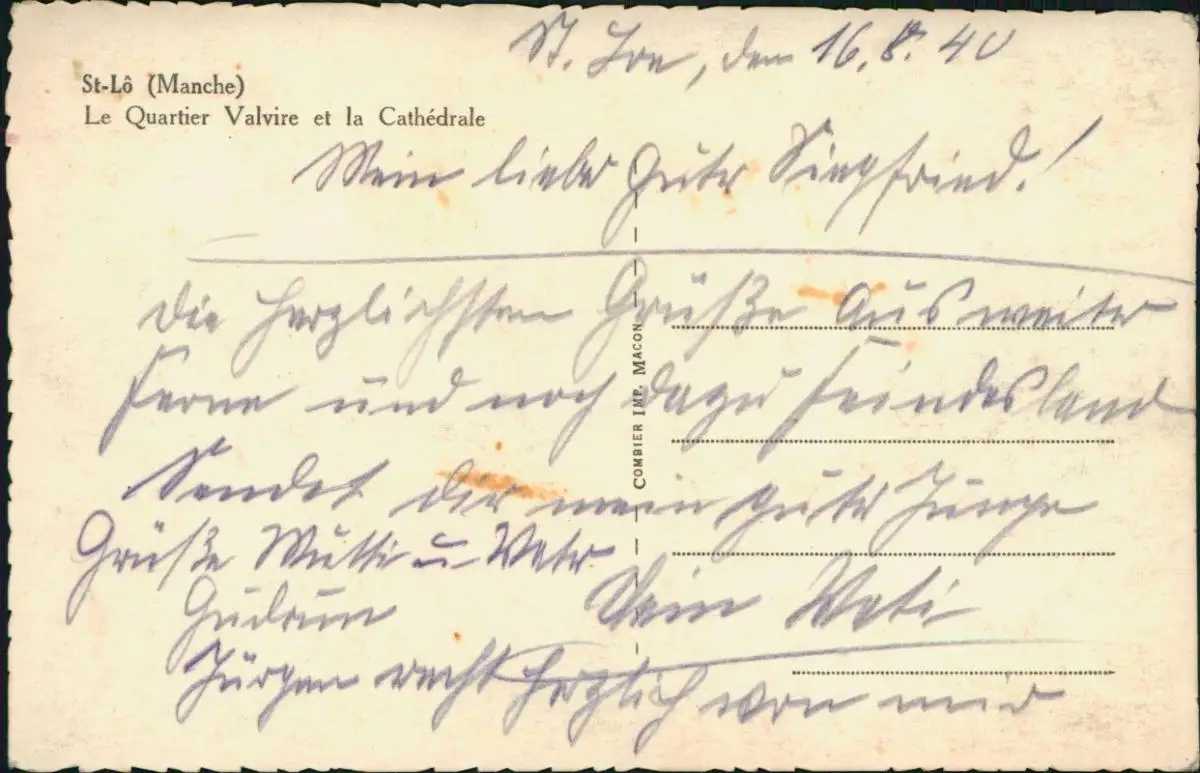 St. Loe, den 16.8.40
St-Lô (Manche)
Le Quartier Valvire et la Cathédrale
Mein lieber guter Siegfried!
Die herzlichsten Grüße aus weiter
Ferne und noch dazu Feindesland
Sendet dir mein guter Junge
Dein Vati
Grüße Mutti u Vater
Gudrun
Jürgen recht herzlich von mir
COMBIER IMP. MACON